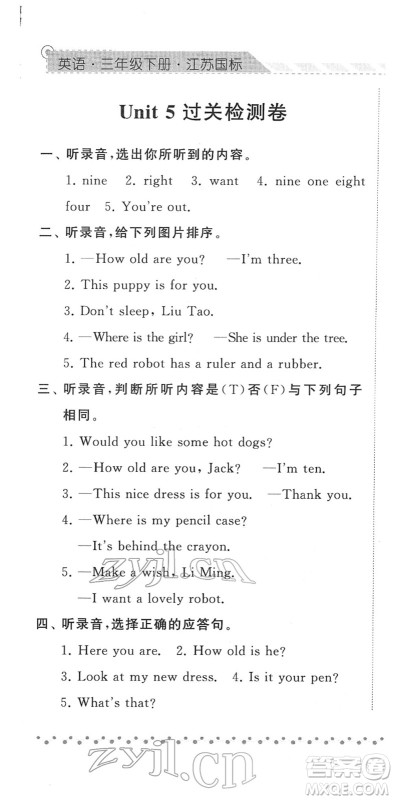 英语·三年级下册·江苏国标
Unit 5 过关检测卷
一、听录音,选出你所听到的内容。
1. nine 2. right 3. want 4. nine one eight
four 5. You're out.
二、听录音,给下列图片排序。
1. —How old are you? —I'm three.
2. This puppy is for you.
3. Don't sleep, Liu Tao.
4. —Where is the girl? —She is under the tree.
5. The red robot has a ruler and a rubber.
三、听录音,判断所听内容是(T)否(F)与下列句子
相同。
1. Would you like some hot dogs?
2. —How old are you, Jack? —I'm ten.
3. —This nice dress is for you. —Thank you.
4. —Where is my pencil case?
—It's behind the crayon.
5. —Make a wish, Li Ming.
—I want a lovely robot.
四、听录音,选择正确的应答句。
1. Here you are. 2. How old is he?
3. Look at my new dress. 4. Is it your pen?
5. What's that?
zyjl.cn
zyjl.cn
答案圈
MXQE.COM